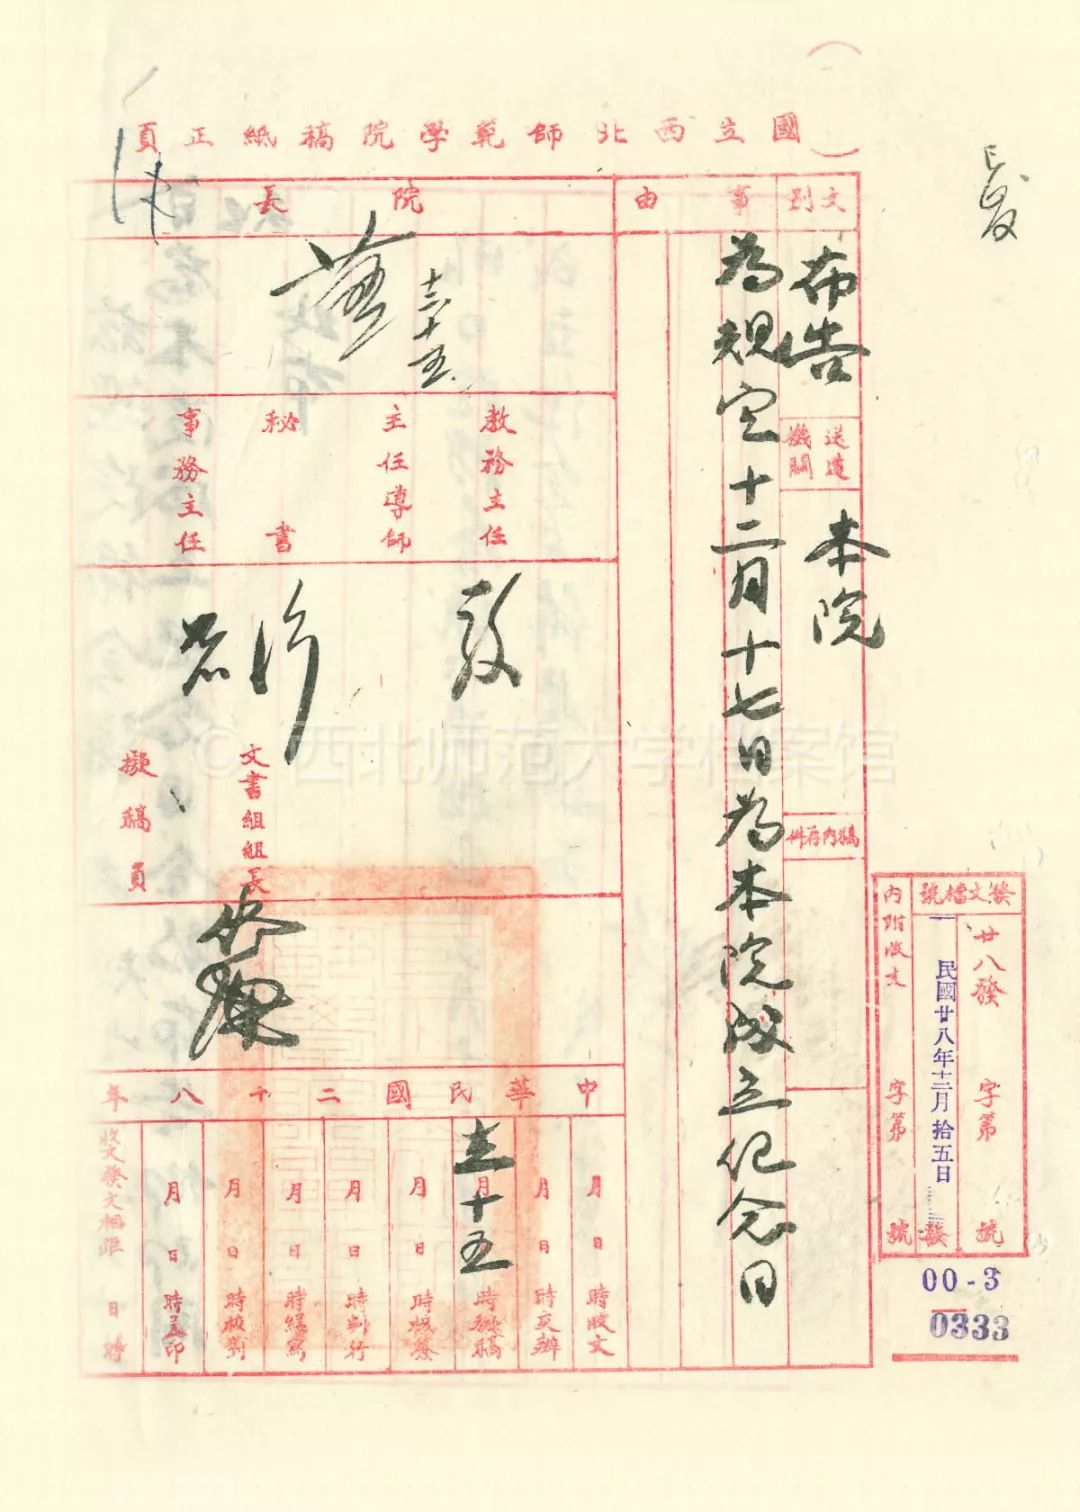 國立西北師範學院稿紙正頁
文別
布告
送達機關
本院
稿內存件
事由
為規定十二月十七日為本院成立紀念日
院長
十二、十五
教務主任
主任導師
秘書
事務主任
文書組組長
擬稿員
中華民國二十八年
月日時收文
月日時交辦
月日時擬稿
十五
月日時核發
月日時判行
月日時繕寫
月日時校對
月日時蓋印
收文發文相距 日時
發文檔號
廿八發 字第 號
民國廿八年十二月拾五日
發
內附收文 字第 號
00-3
0333
© 西北师范大学档案馆